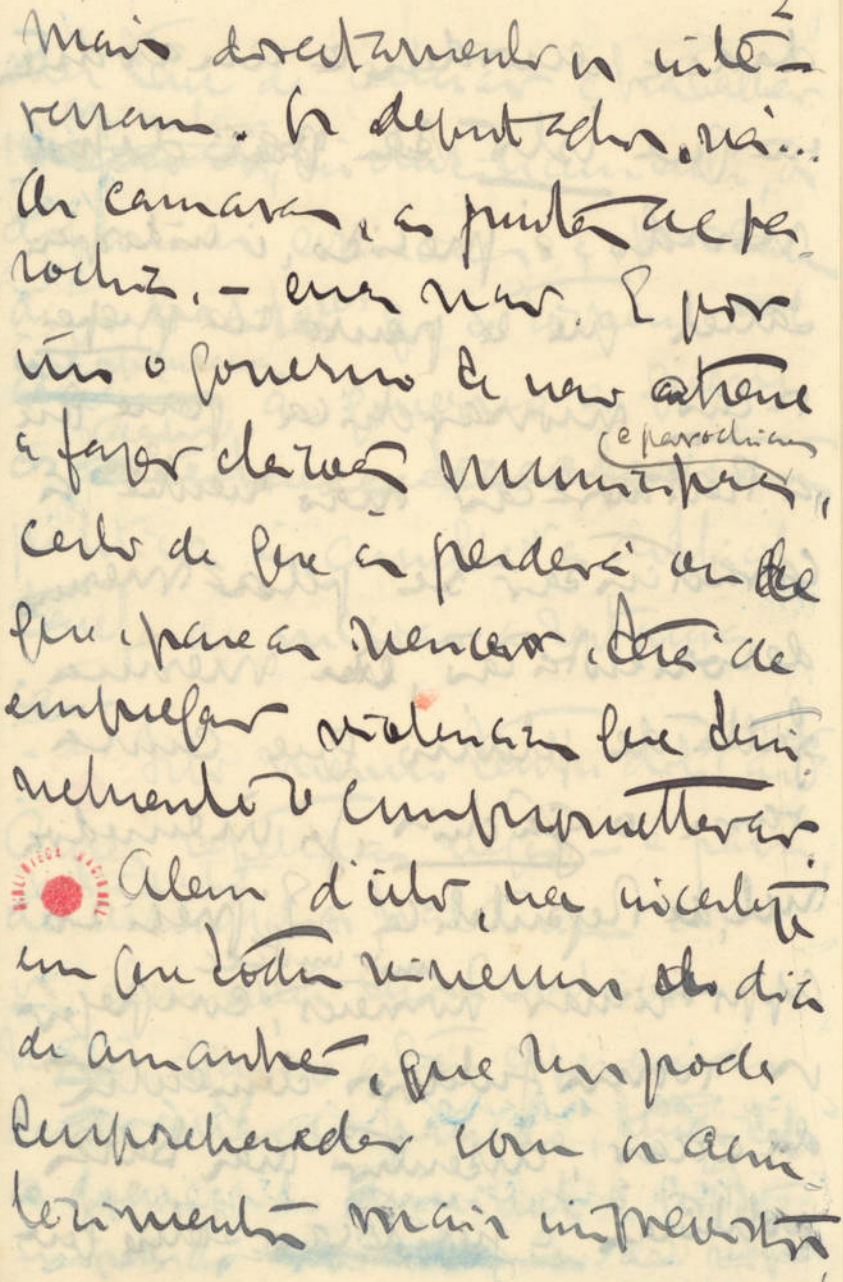 2
mais directamente os inte-
ressam. Os deputados, vá...
As camaras, as juntas de pa-
rochia, - essas não. E por
isso o governo se não atreve
a fazer eleições municipaes,
(e parochiaes
certo de que as perderá ou de
que, para as vencer, terá de
empregar violencias que
o comprometterão.
BIBLIOTECA NACIONAL
Alem d'isto, na incerteza
em que todos vivemos do dia
de amanhã, que nos pode
surprehender com os acon-
tecimentos mais imprevistos